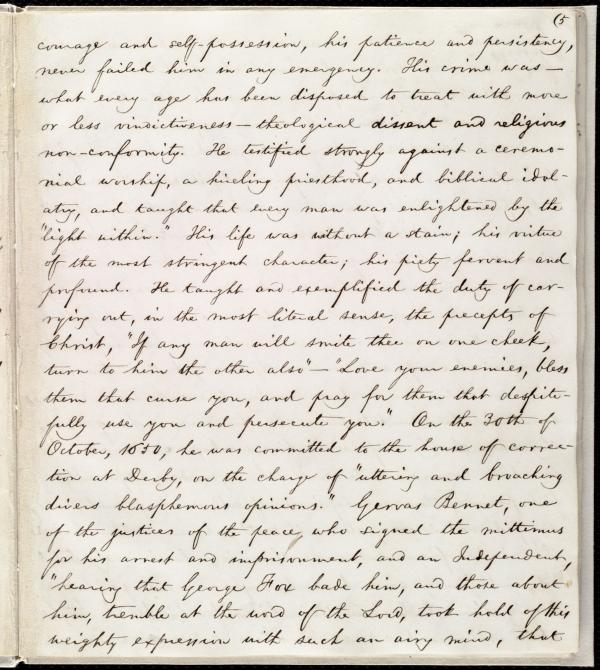 (5
courage and self-possession, his patience and persistency,
never failed him in any emergency. His crime was—
what every age has been disposed to treat with more
or less vindictiveness—theological dissent and religious
non-conformity. He testified strongly against a ceremo-
nial worship, a hireling priesthood, and biblical idol-
atry, and taught that every man was enlightened by the
"light within." His life was without a stain; his virtue
of the most stringent character; his piety fervent and
profound. He taught and exemplified the duty of car-
rying out, in the most literal sense, the precepts of
Christ, "If any man will smite thee on one cheek,
turn to him the other also"—"Love your enemies, bless
them that curse you, and pray for them that despite-
fully use you and persecute you." On the 30th of
October, 1650, he was committed to the house of correc-
tion at Derby, on the charge of "uttering and broaching
divers blasphemous opinions." Gervas Bennet, one
of the justices of the peace who signed the mittimus
for his arrest and imprisonment, and an Independent,
"hearing that George Fox bade him, and those about
him, tremble at the word of the Lord, took hold of this
weighty expression with such an airy mind, that